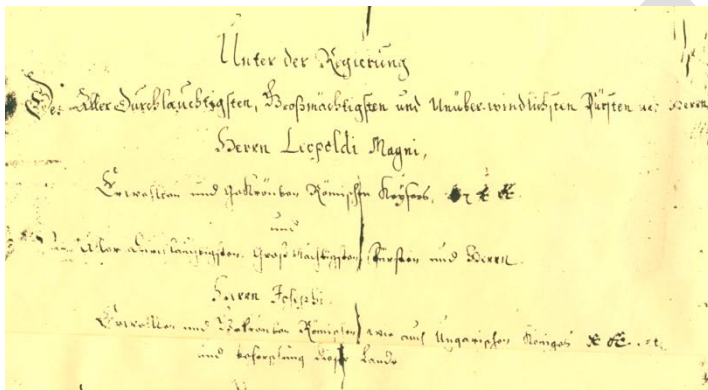 Unter der Regierung
Des Aller Durchlauchtigsten, Großmächtigsten und Unüberwindlichsten Fürsten und Herrn
Herrn Leopoldi Magni,
Erwehlten und Gekrönten Römischen Keysers,
und
Aller Durchlauchtigsten, Groß Mächtigsten Fürsten und Herrn
Herrn Josephi
Erwehlten und Gekrönten Römischen wie auch Ungarischen Königes
und dieser Lande